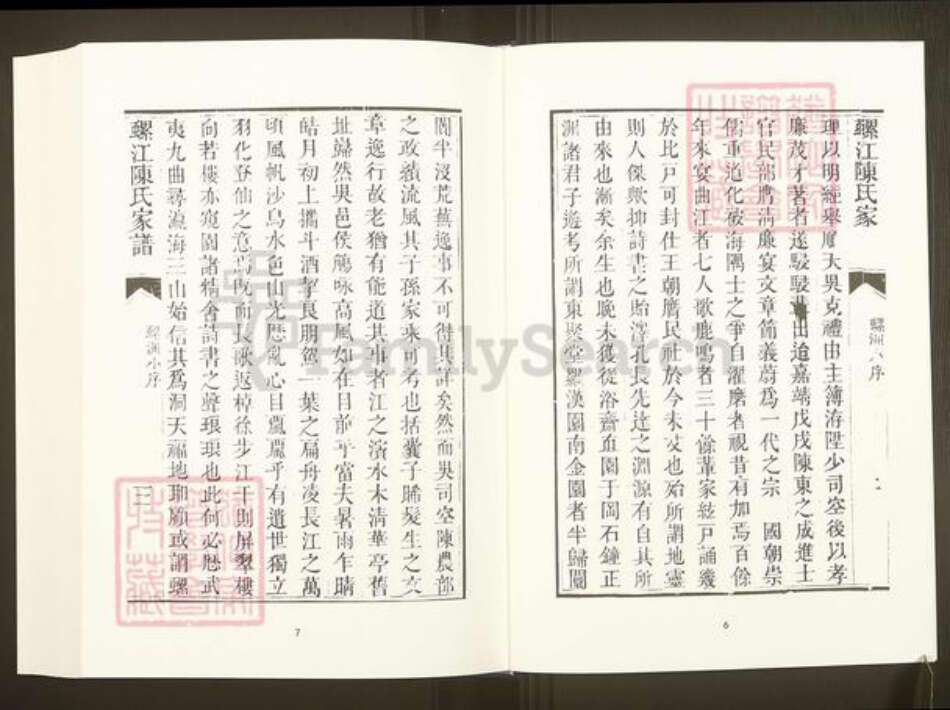 螺江陳氏家
螺洲小序
二
理以明經舉廣大吳克禮由主簿洊陞少司空後以孝
廉茂才著者遂駸駸輩出迨嘉靖戊戌陳東之成進士
官民部將清廉宴文章節義蔚爲一代之宗 國朝崇
儒重道化被海隅士之爭自濯磨者視昔有加焉百餘
年來宴曲江者七人歌鹿鳴者三十餘輩家絃戸誦幾
於比戸可封仕王朝膺民社於今未艾也殆所謂地靈
則人傑歟抑詩書之貽澤孔長先達之淵源有自其所
由來也漸矣余生也晚未獲從浴齋血園于岡石鐘正
洲諸君子遊考所謂東聚堂羅漢園南金園者半歸闤
6
闠半沒荒蕪逸事不可得其詳矣然而吳司空陳農部
之政績流風其子孫家乘可考也括囊子晞髮生之文
章逸行故老猶有能道其事者江之濱水木清華亭舊
址巋然吳邑侯觴咏高風如在目前乎當夫暑雨乍晴
皓月初上攜斗酒挈良朋駕一葉之扁舟凌長江之萬
頃風帆沙鳥水色山光歷亂心目飄飄乎有遺世獨立
羽化登仙之意焉既而長歌返棹徐步江干則屏翠樓
向若樓亦寬園諸精舍詩書之聲琅琅也此何必歷武
夷九曲尋瀛海三山始信其爲洞天福地聊願或謂螺
螺江陳氏家譜
螺洲小序
三
7
FamilySearch